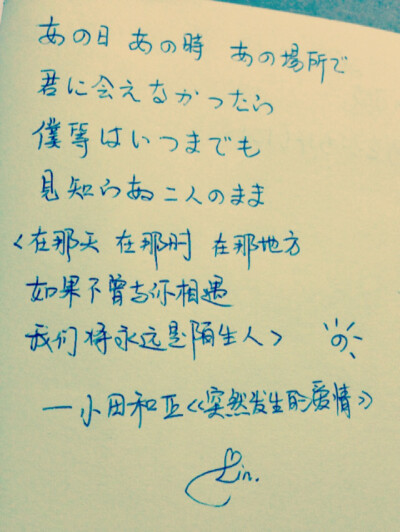 あの日 あの時 あの場所で
君に会えなかったら
僕等はいつまでも
見知らぬ二人のまま
<在那天 在那时 在那地方
如果不曾与你相遇
我们将永远是陌生人>
—小田和正《突然发生的爱情》
Lin.